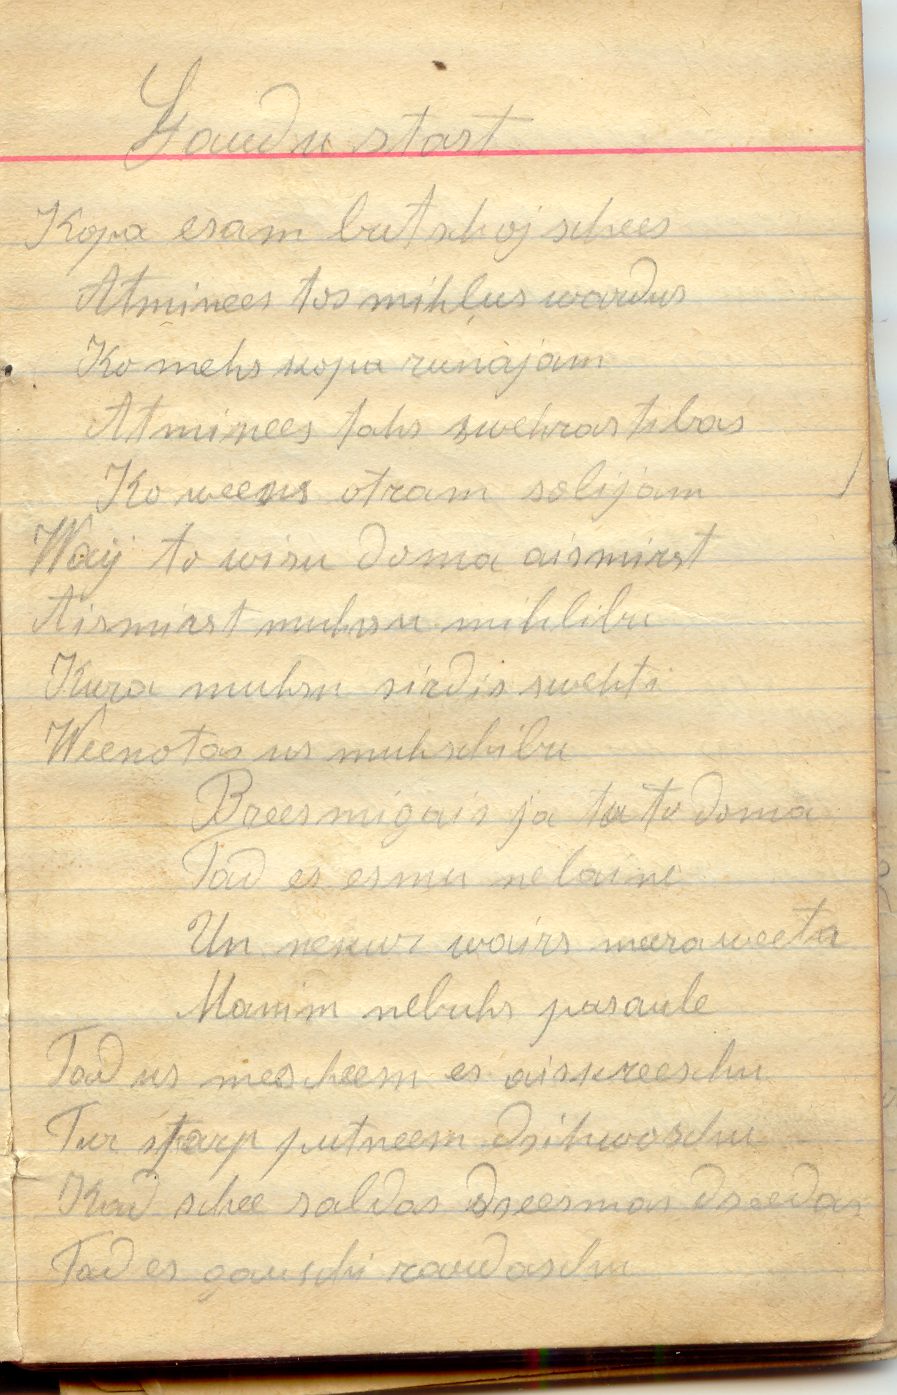 Kopa esam but schoj schees
Atminees tos mihļus wardus
Ko mehs kopa runajam
Atminees tahs swehrastibas
Ko weens otram solijam
Waij to wisu doma aismirst
Aismirst muhsu mihlibu
Kura muhsu sirdis swehti
Weenotas us muhschibu
Breesmigais ja tu to doma
Tad es esmu nelaime
Un nekur wairs meera weeta
Manim nebuhs pasaule
Tad us mescheem es aiskreeschu
Tur starp putneem dsihwoschu
Kad schee saldas dseesmas dseedas
Tad es gauschi raudaschu